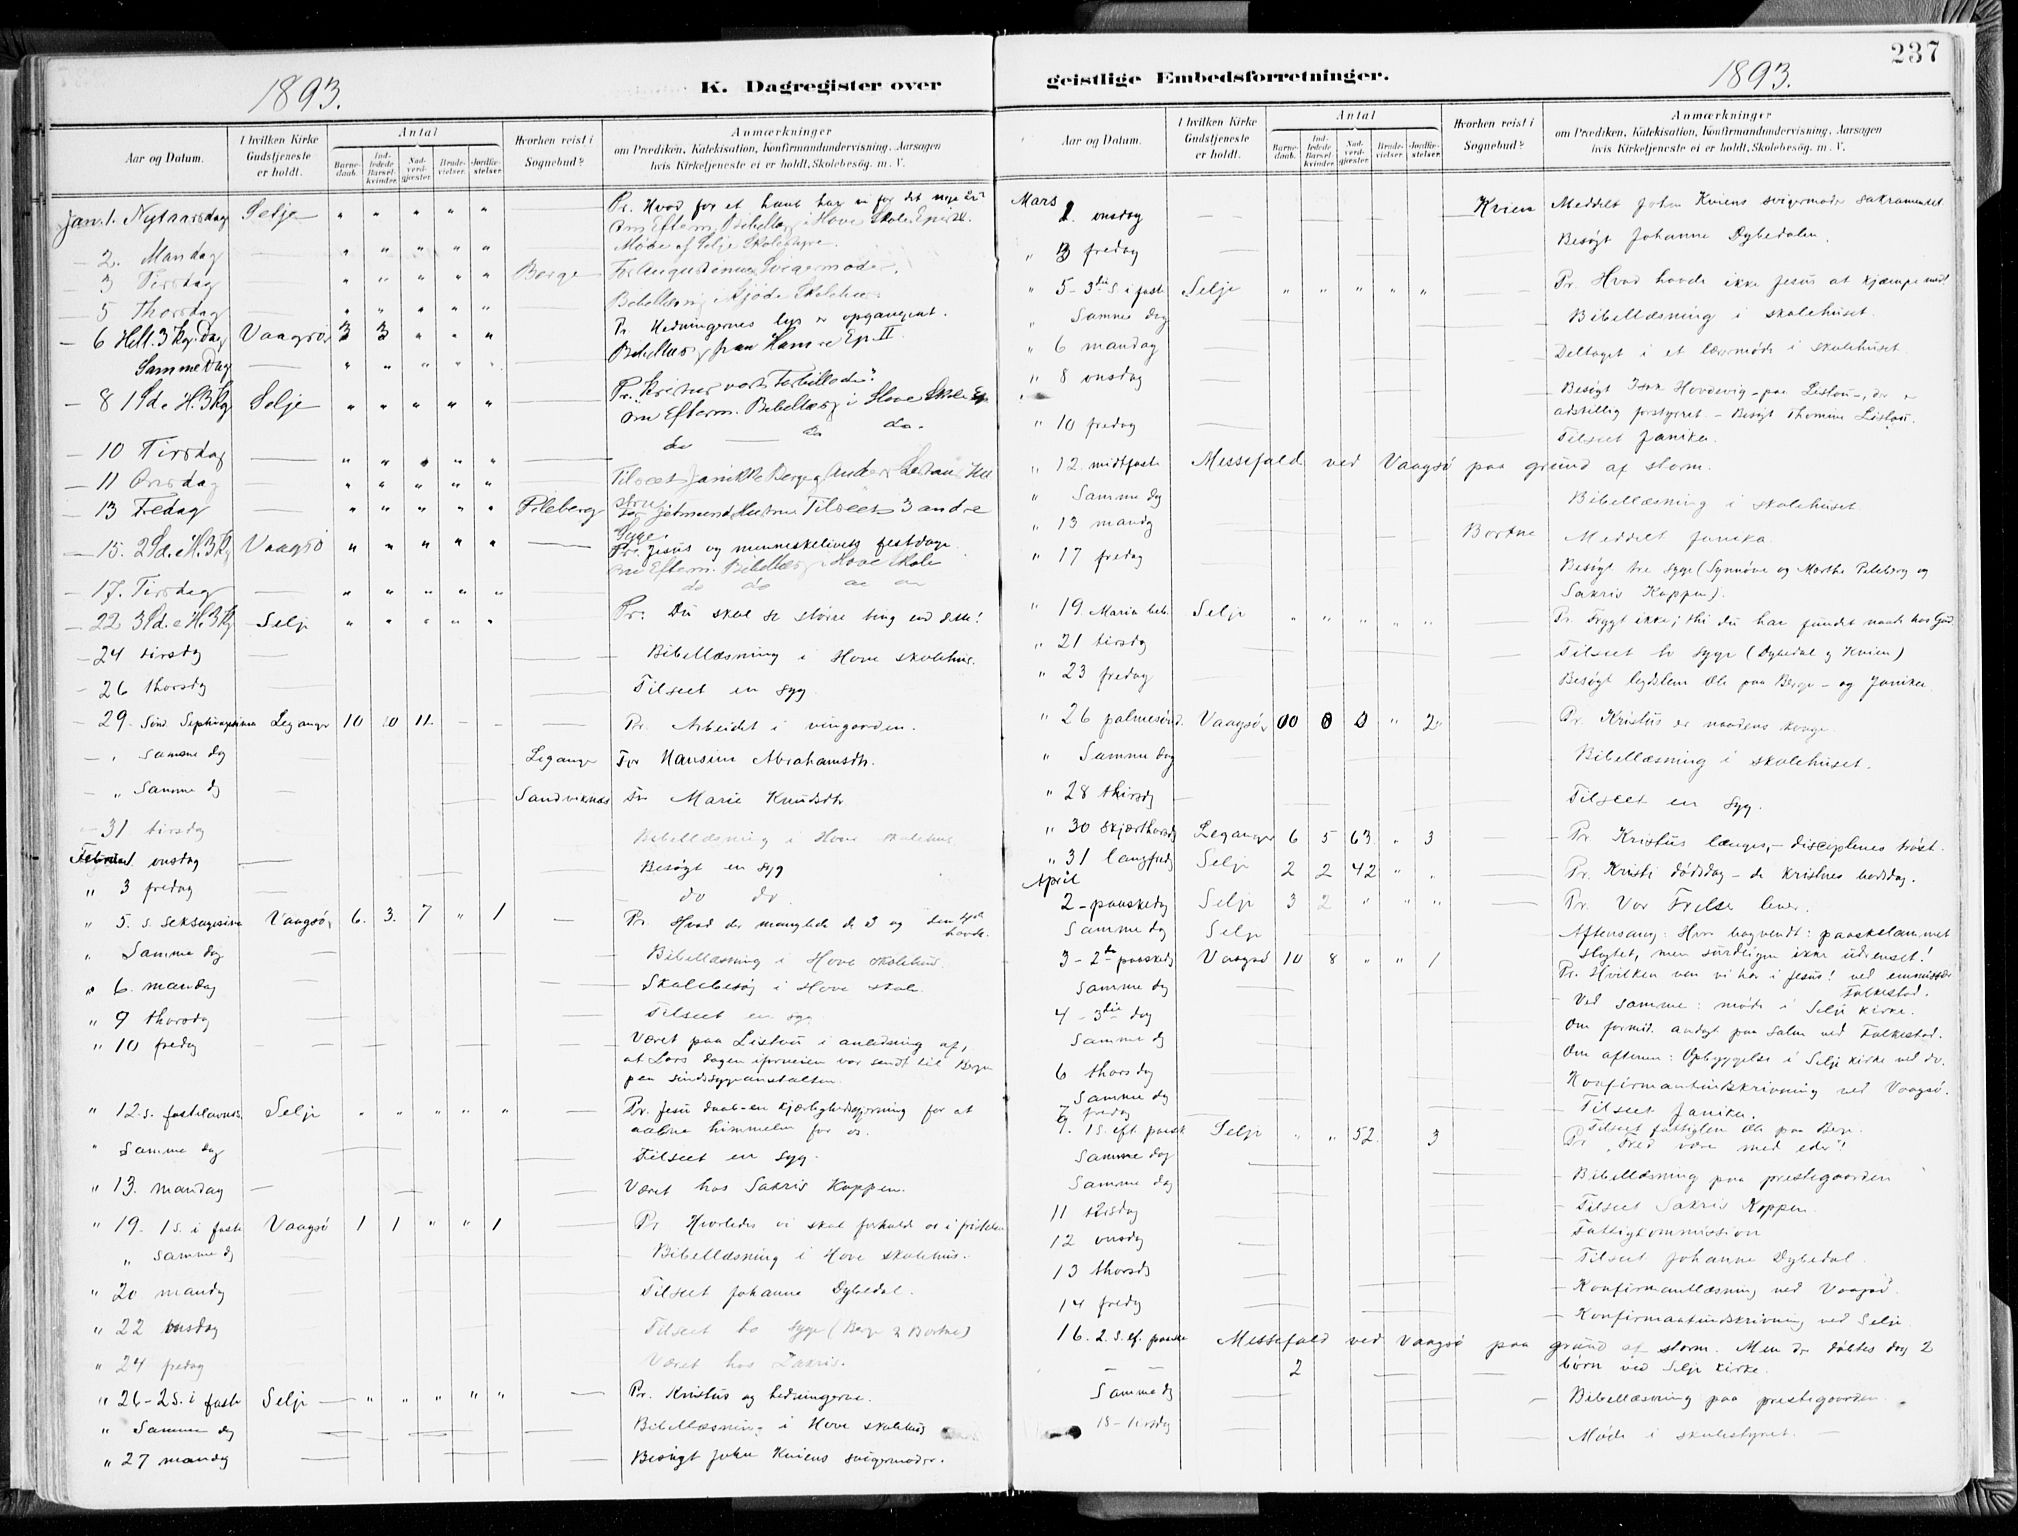 237
1893.
K. Dagregister over
geistlige Embedsforretninger.
1893.
Aar og Datum.
I hvilken Kirke Gudstjeneste er holdt.
Antal
Barnedaab.
Indledede Barselkvinder.
Nadverdgjæster.
Brudevielser.
Jordfæstelser.
Hvorhen reist i Sognebud?
Anmærkninger
om Prædiken, Katekisation, Konfirmandundervisning, Aarsagen
hvis Kirketjeneste ei er holdt, Skolebesøg. m. V.
Jan. 1. Nytaarsdag Selje " " " " " Pr. Hvad for et haab har vi for det nye år?
Om Efterm. Bibellæsg i Hove Skole
– 2. Mandag " " " " " Møde af Selje Skolestyre.
– 3 Tirsdag " " " " " Berge For Svigermoder.
– 5 Thorsdag " " " " " Bibellæsng i Skolehus
– 6 Hell. 3 Kg. Dag Vaagsø 3 3 " " " Pr. Hedningernes lys er opgangent.
Samme Dag " " " " " Bibellæsg
– 8 1 Sd. e. H. 3 Kg Selje " " " " " Pr. Kristus vort Forbillede.
Om Efterm. Bibellæsg i Hove Skole
– 10 Tirsdag do – do do.
– 11 Onsdag " " " " " Tilseet
– 13 Fredag " " " " " Pileberg Tilseet 3 andre
Syge.
– 15. 2 Sd. e. H. 3 Kg Vaagsø " " " " " Pr. Jesus og menneskelivets festdage.
Om Efterm. Bibellæsg i Hove Skole
– 17. Tirsdag " " " " " do do
– 22 3 Sd. e. H. 3 Kg Selje " " " " " Pr: Du skal se større ting end dette!
– 24 tirsdg Bibellæsning i Hove skolehus.
– 26 thorsdg Tilseet en syg.
– 29. Sønd Septuagesima Leganger 10 10 11. Pr. Arbeidet i vingaarden.
" Samme dg Legange For Hansine Abrahamsdtr.
" Samme dg Sandviknæs For Marie Knudsdtr
– 31 tirsdg Bibellæsning i Hove skolehus
Februar 1. onsdag Besøgt en syg
" 3 fredag do do.
" 5. s. seksagesima Vaagsø 6. 3. 7 " 1 Pr. Hvad der manglede de 3 og den 4de
havde.
" Samme dag Bibellæsning i Hove skolehus.
" 6. mandag Skolebesøg i Hove skole.
" 9 thorsdg Tilseet en syg
" 10 fredag Været paa Listou i anledning af,
at Lars var sendt til Bergen
paa sindssygeanstalten.
" 12. s. fastelavns. Selje " " " " " Pr. Jesu daab – en kjærlighedsgjerning for at
aabne himmelen for os.
" Samme dag Tilseet en syg.
" 13. mandag Været hos Sakris Koppen.
" 19. 1 s. i faste Vaagsø 1 1 " " 1 Pr. Hvorledes vi skal forholde os i fristelsen
" Samme dg Bibellæsning i Hove skolehus.
" 20 mandg Tilseet Johanne Dybedal.
" 22 onsdag Tilseet to syge (Berge & Bortne)
" 24 fredag Været hos Zakris.
" 26 – 2 s. i faste Selje " " " " " Pr. Kristus og hedningerne.
" Samme dg Bibellæsning i Hove skolehus
" 27 mandag Besøgt John Kviens svigermoder.
Aar og Datum.
I hvilken Kirke Gudstjeneste er holdt.
Antal
Barnedaab.
Indledede Barselkvinder.
Nadverdgjæster.
Brudevielser.
Jordfæstelser.
Hvorhen reist i Sognebud?
Anmærkninger
om Prædiken, Katekisation, Konfirmandundervisning, Aarsagen
hvis Kirketjeneste ei er holdt, Skolebesøg. m. V.
Mars
1. onsdag Kvien Meddelt John Kviens svigermoder sakramentet
" 3 fredag Besøgt Johanne Dybedalen.
" 5 – 3die s. i faste Selje " " " " " Pr. Hvad havde ikke Jesus at kjæmpe med
" Samme dag Bibellæsning i skolehuset.
" 6 mandag Deltaget i et læremøde i skolehuset.
" 8 onsdag Besøgt Isak Hovdevig – paa Listou –, der er
adskillig forstyrret. – Besøgt Thomine Listou.
" 10 fredag Tilseet Janika.
" 12. midtfaste Messefald ved Vaagsø paa grund af storm.
" Samme dg Bibellæsning i skolehuset.
" 13 mandg Bortne Meddelt Janika.
" 17 fredag Besøgt tre syge (Synnøve og Marthe Peleberg og
Sakris Koppen).
" 19. Maria beb. Selje " " " " " Pr. Frygt ikke; thi du har fundet naade hos Gud.
" 21 tirsdg Tilseet to syge (Dybedal og Kvien)
" 23 fredag Besøgt Ole paa Berge – og Janika.
" 26 palmesønd. Vaagsø 2 Pr. Kristus er naadens konge.
" Samme dag Bibellæsning i skolehuset.
" 28 thirsdg Tilseet en syg.
" 30 skjærthorsdg Leganger 6 5 63. " 3 Pr. Kristus længes, – disciplenes trøst.
" 31 langfredg Selje 2 2 42 " " Pr. Kristi dødsdag – de kristnes bodsdag.
April
2 – paaskedg Selje 3 2 " " " Pr. Vor Frelser lever.
Samme dg Selje Aftensang: Hvor bagvendt: paaskelammet
slagtet, men surdeigen ikke udrenset!
3 – 2den paaskedg Vaagsø 10 8 " " 1 Pr. Hvilken ven vi har i Jesus! ved emmissær
Folkestad.
Samme dg Ved samme: møde i Selje kirke.
4 – 3die dag Om formid. andagt paa Salen ved Folkestad.
Samme dg Om aftenen: Opbyggelse i Selje kirke ved do.
6 thorsdg Konfirmantindskrivning ved Vaagsø.
Samme dg Tilseet Janika.
7 fredag Tilseet fattiglem Ole paa Berge.
9. 1 s. eft. paaske Selje " " 52. 3 Pr. "Fred være med eder"!
Samme dag Bibellæsning paa prestegaarden
Samme dg Tilseet Sakris Koppen.
11 tirsdag Fattigkommission
12 onsdg Tilseet Johanne Dybedal.
13 thorsdg Konfirmantlæsning ved Vaagsø.
14 fredg Konfirmantindskrivning ved Selje.
16. 2. s. ef. paaske Messefald ved Vaagsø paa grund af storm. Men der døbtes dog 2
2 børn ved Selje kirke.
Samme dg Bibellæsning paa prestegaarden.
18 – tirsdg Møde i skolestyret.